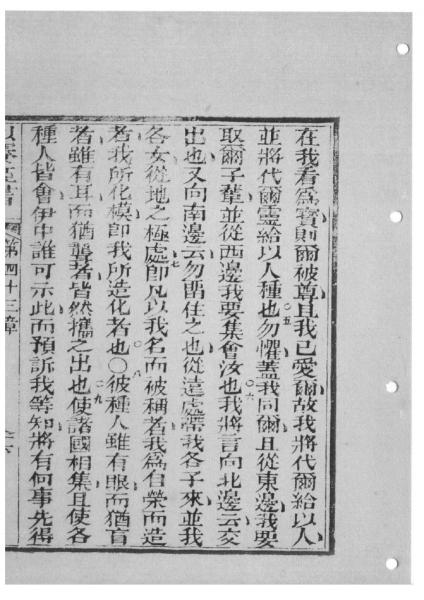 在我看爲寶則爾被尊且我已愛爾故我將代爾給以人
並將代爾靈給以人種也○五勿懼蓋我同爾且從東邊我要
取爾子輩並從西邊我要集會汝也○六我將言向北邊云交
出也又向南邊云勿畱住之也從遠處帶我各子來並我
各女從地之極處○七卽凡以我名而被稱者我爲自榮而造
者我所化模卽我所造化者也○○八彼種人雖有眼而猶盲
者雖有耳而猶聾者皆然攜之出也○九使諸國相集且使各
種人皆會伊中誰可示此而預訴我等知將有何事先得
第四十三章